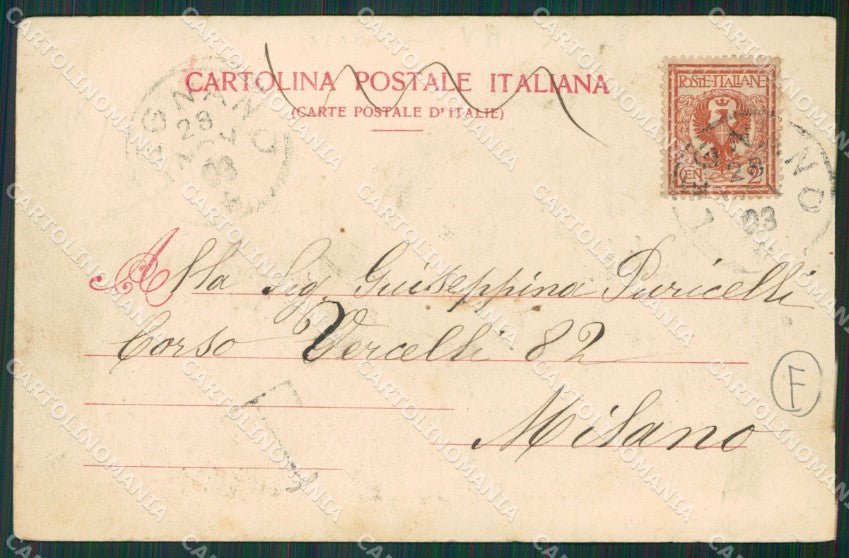 CARTOLINA POSTALE ITALIANA
(CARTE POSTALE D'ITALIE)
POSTE·ITALIANE
CEN 2
LEGNANO
28
NOV
03
LEGNANO
28
03
Alla Sig Guiseppina Puricelli
Corso Vercelli 82
Milano
F
CARTOLINOMANIA